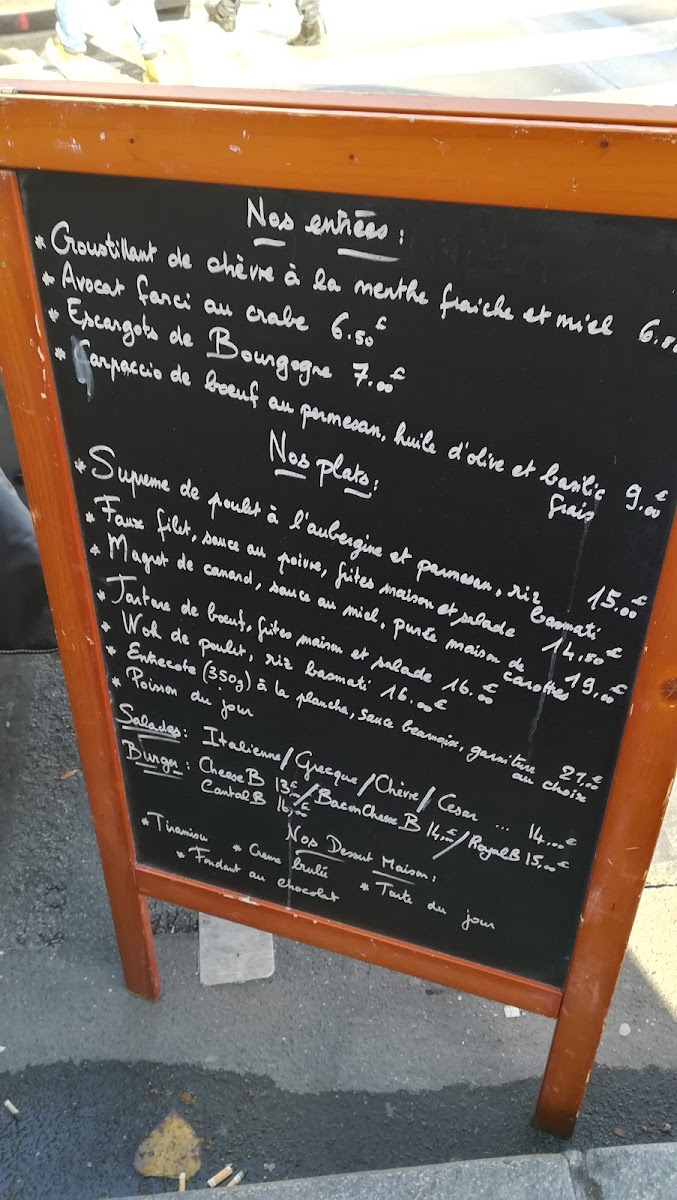 Nos entrées :
* Croustillant de chèvre à la menthe fraiche et miel 6.
* Avocat farci au crabe 6.50€
* Escargots de Bourgogne 7.00€
* Carpaccio de boeuf au parmesan, huile d'olive et basilic 9.00€
frais
Nos plats :
* Supreme de poulet à l'aubergine et parmesan, riz 15.00€
basmati
* Faux filet, sauce au poivre, frites maison et salade 14.50€
* Magret de canard, sauce au miel, purée maison de 19.00€
carottes
* Tartare de boeuf, frites maison et salade 16.00€
* Wok de poulet, riz basmati 16.00€
* Entrecote (350g) à la plancha, sauce bearnaise, garniture 21.00€
au choix
* Poisson du jour
Salades : Italienne / Grecque / Chèvre / Cesar ... 14.00€
Burger : Cheese B 13€ / Bacon Cheese B 14.00€ / Royal B 15.00€
Cantal B 16.00€
Nos Dessert Maison :
* Tiramisu * Creme brulée * Tarte du jour
* Fondant au chocolat